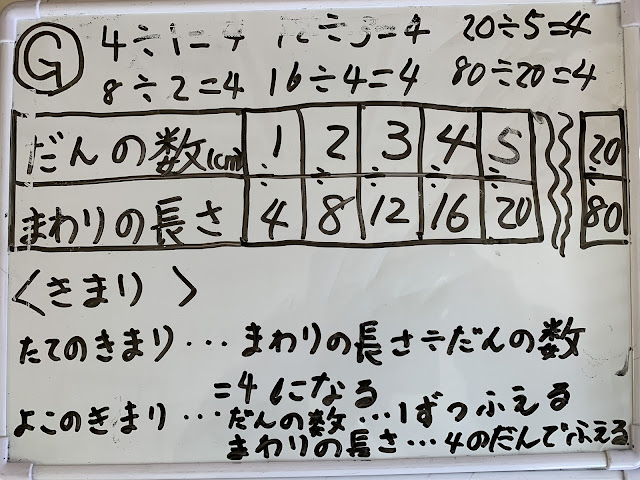 G
4÷1=4 12÷3=4 20÷5=4
8÷2=4 16÷4=4 80÷20=4
だんの数(cm) 1 2 3 4 5 20
÷ ÷ ÷ ÷ ÷ ÷
まわりの長さ 4 8 12 16 20 80
〈きまり 〉
たてのきまり・・・まわりの長さ÷だんの数
=4になる
よこのきまり・・・だんの数・・・1ずつふえる
まわりの長さ・・・4のだんでふえる